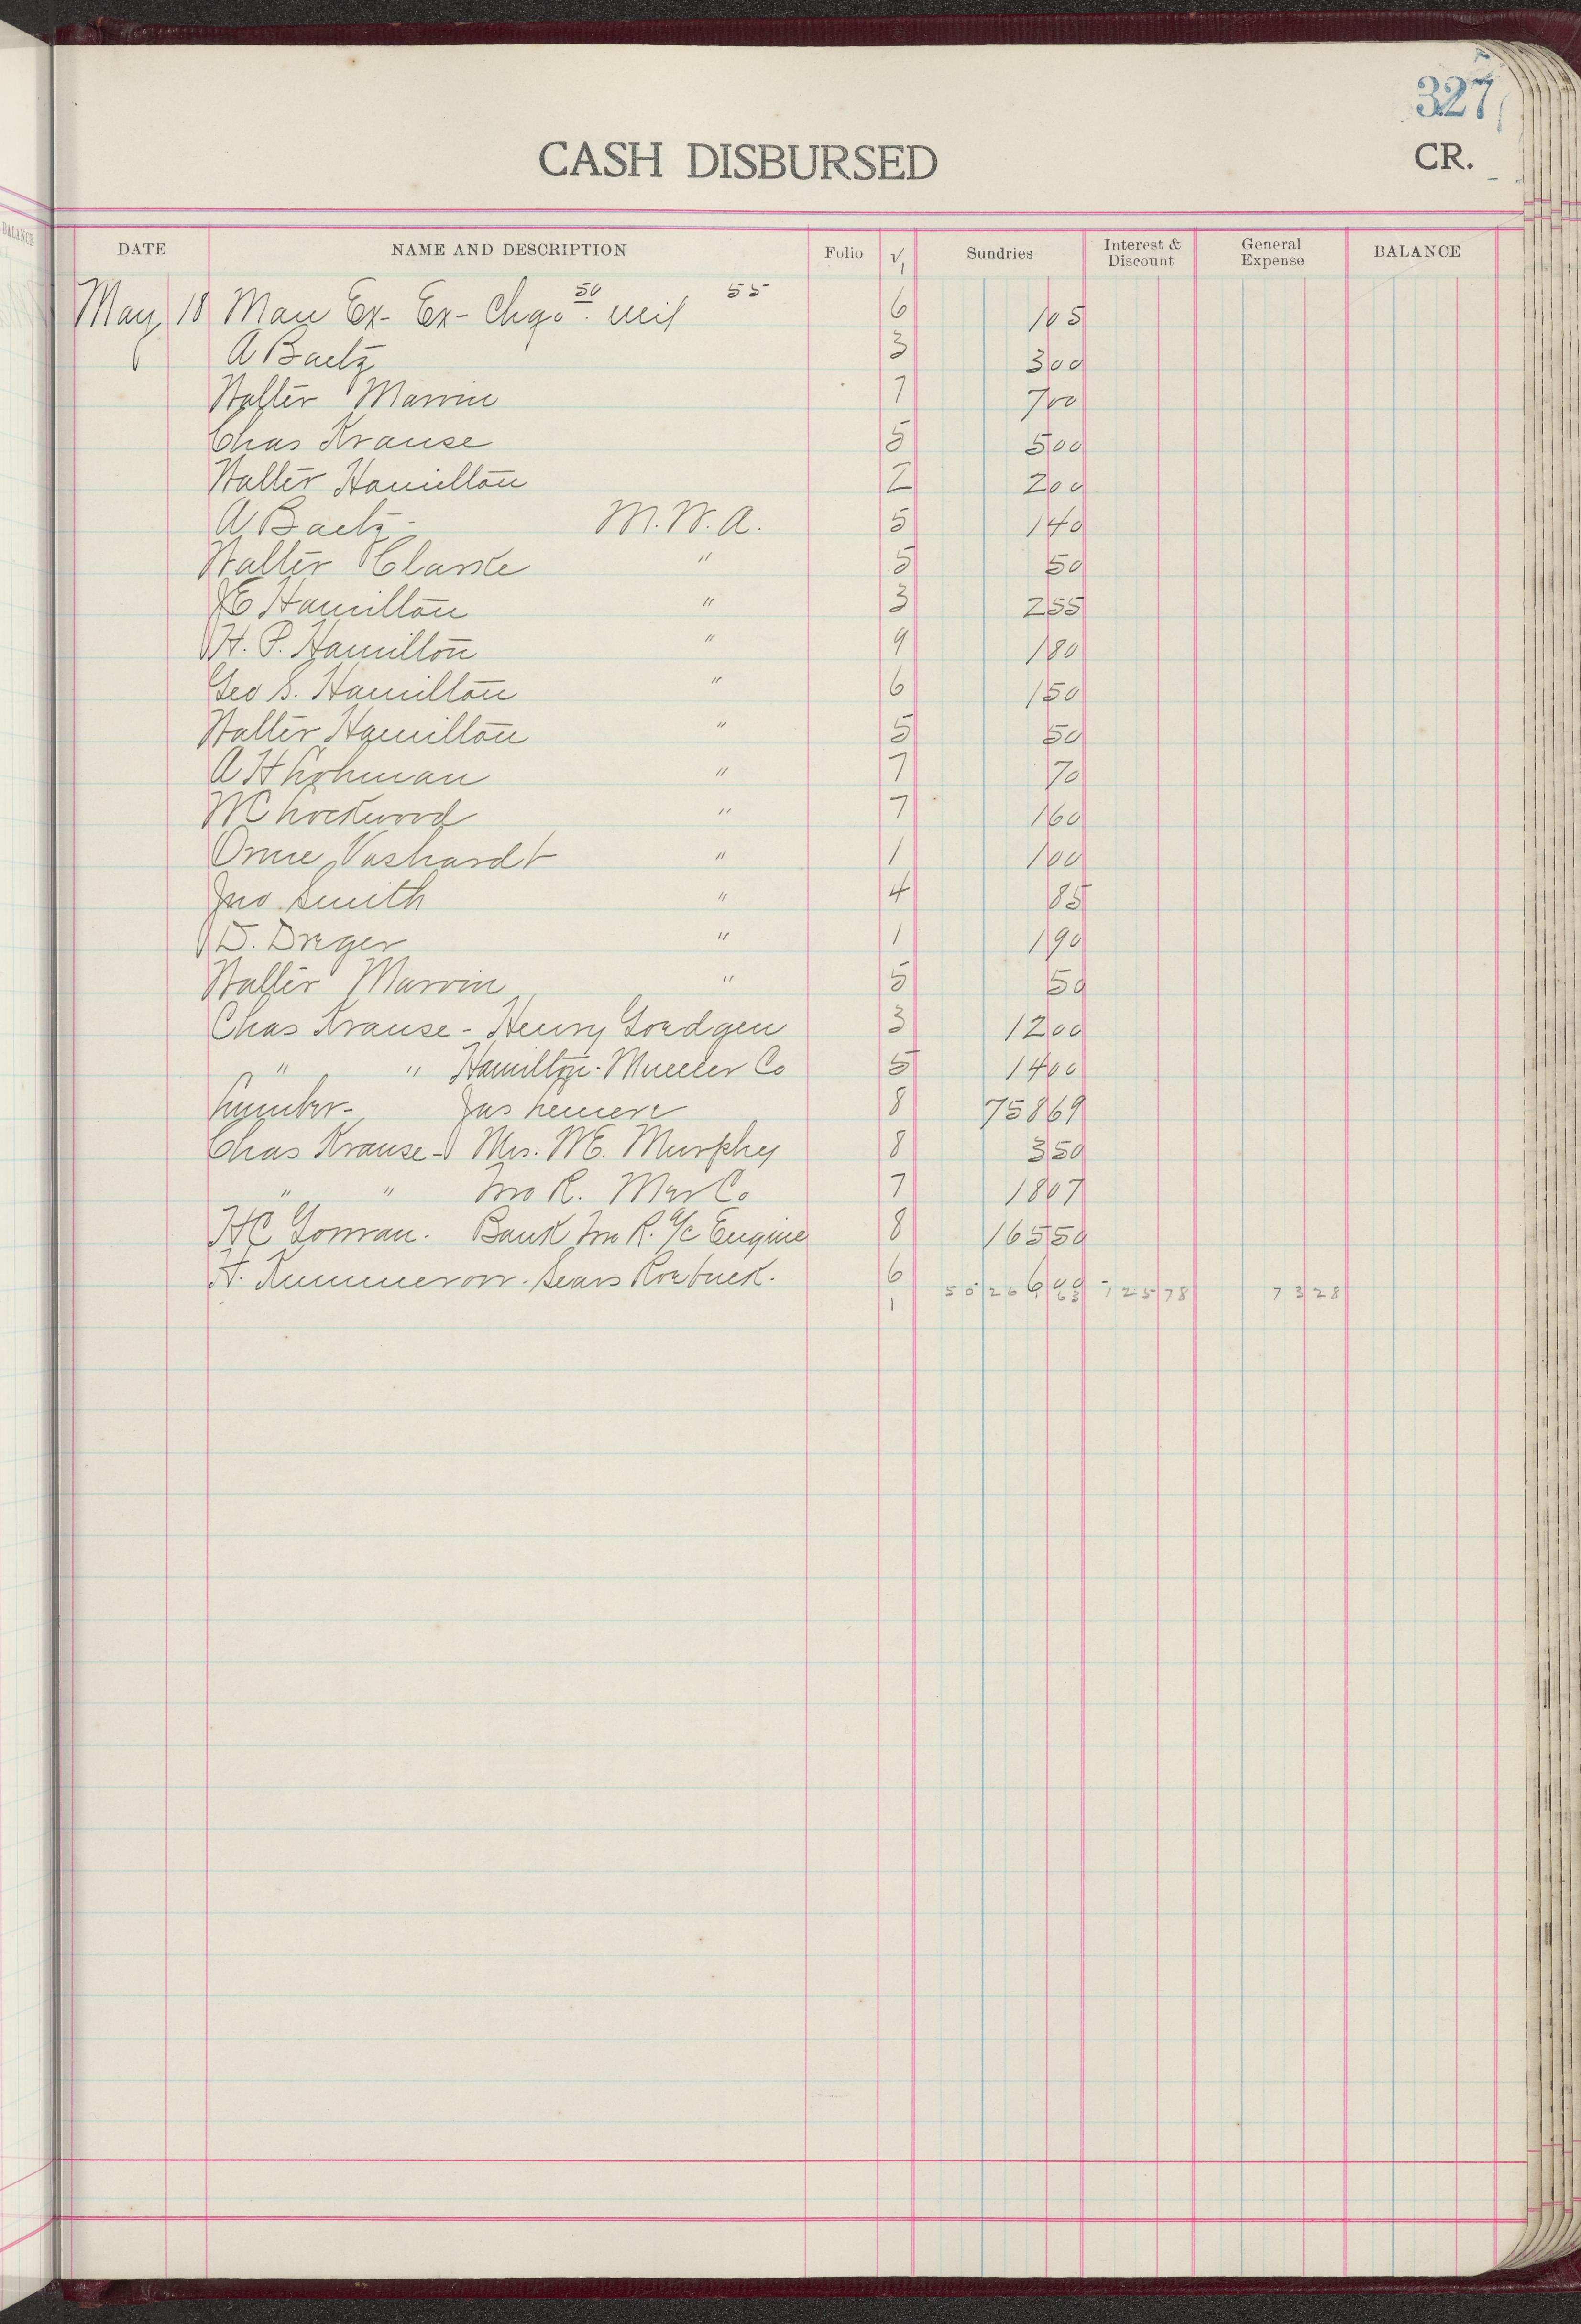 327
CASH DISBURSED
CR.
DATE NAME AND DESCRIPTION Folio √ Sundries Interest & Discount General Expense BALANCE
May 18 Man Ex- Ex- Chgo 50 Mil 55 6 1 05
A Baetz 3 3 00
Walter Marvin 7 7 00
Chas Krause 5 5 00
Walter Hamilton 2 2 00
A Baetz - M.W.A. 5 1 40
Walter Clarke " 5 50
JE Hamilton " 3 2 55
H. P. Hamilton " 9 1 80
Geo S. Hamilton " 6 1 50
Walter Hamilton " 5 50
A H Lohman " 7 70
WC Lockwood " 7 1 60
Orme Vashardt " 1 1 00
Jno Smith " 4 85
D. Dreger " 1 1 90
Walter Marvin " 5 50
Chas Krause - Henry Goedgen 3 12 00
" " Hamilton-Mueller Co 5 14 00
Lumber - Jas Lemere 8 758 69
Chas Krause - Mrs. WE. Murphy 8 3 50
" " Two R. Mer Co 7 18 07
HC Gowran. Bank Two R. a/c Engine 8 165 50
H. Kummerow - Sears Roebuck. 6 6 00
1 50 26 1 63 125 78 73 28